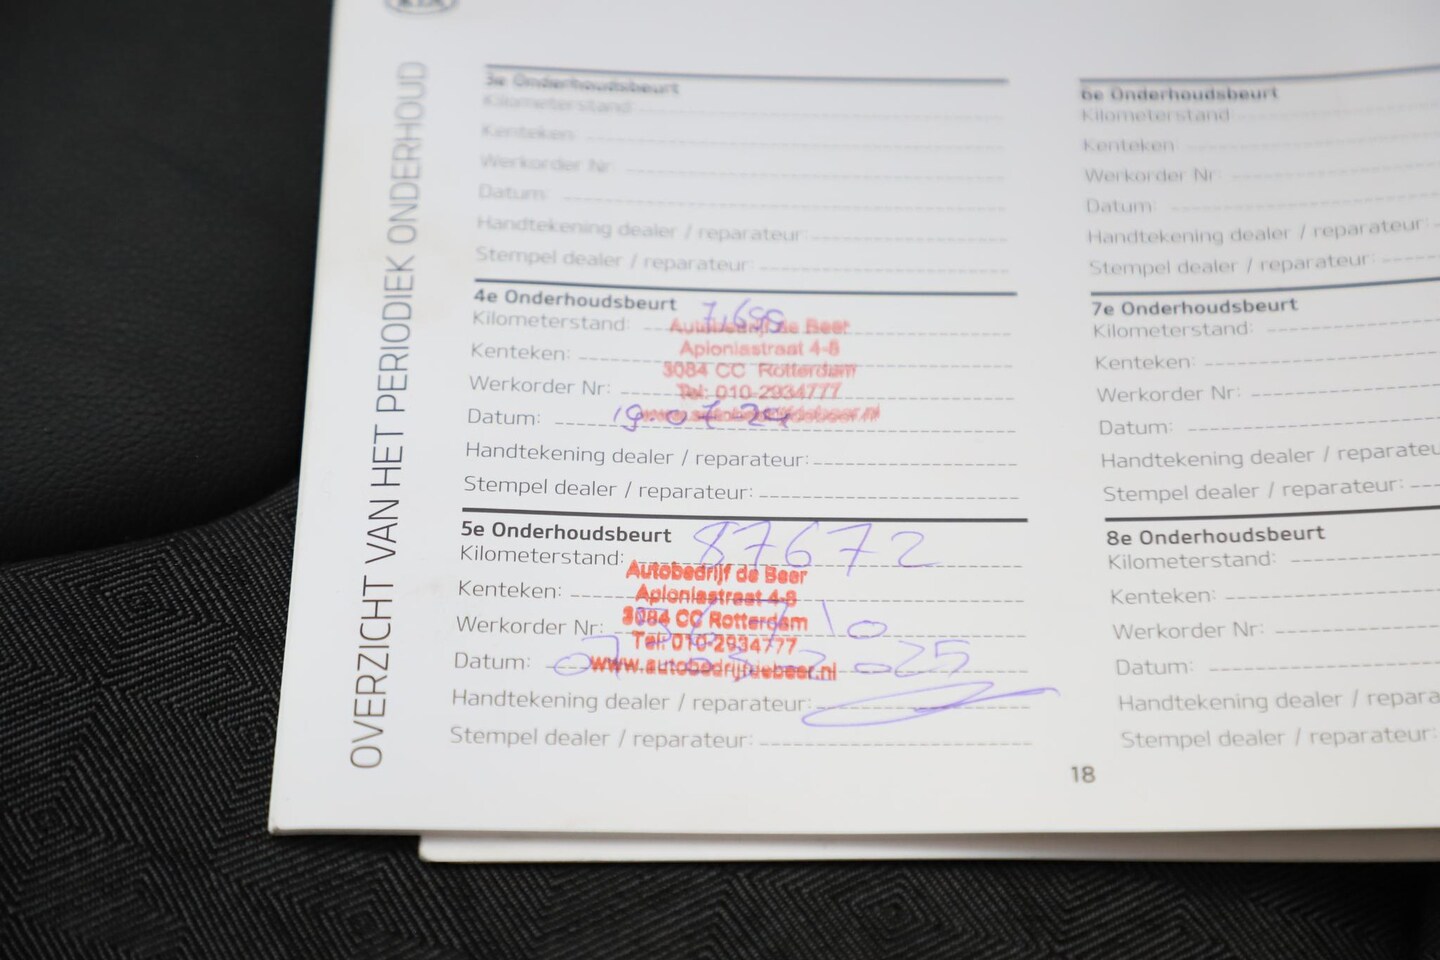 KIA
OVERZICHT VAN HET PERIODIEK ONDERHOUD
3e Onderhoudsbeurt
Kilometerstand:
Kenteken:
Werkorder Nr:
Datum:
Handtekening dealer / reparateur:
Stempel dealer / reparateur:
4e Onderhoudsbeurt
Kilometerstand: 71699
Autobedrijf de Beer
Aploniastraat 4-8
Kenteken:
3084 CC Rotterdam
Werkorder Nr:
Tel: 010-2934777
www.autobedrijfdebeer.nl
Datum: 19-07-24
Handtekening dealer / reparateur:
Stempel dealer / reparateur:
5e Onderhoudsbeurt
Kilometerstand: 87672
Autobedrijf de Beer
Kenteken:
Aploniastraat 4-8
3084 CC Rotterdam
Werkorder Nr:
Tel: 010-2934777
Datum: 07-03-2025
www.autobedrijfdebeer.nl
Handtekening dealer / reparateur:
Stempel dealer / reparateur:
6e Onderhoudsbeurt
Kilometerstand
Kenteken:
Werkorder Nr:
Datum:
Handtekening dealer / reparateur:
Stempel dealer / reparateur:
7e Onderhoudsbeurt
Kilometerstand:
Kenteken:
Werkorder Nr:
Datum:
Handtekening dealer / reparateu
Stempel dealer / reparateur:
8e Onderhoudsbeurt
Kilometerstand:
Kenteken:
Werkorder Nr:
Datum:
Handtekening dealer / repara
Stempel dealer / reparateur:
18